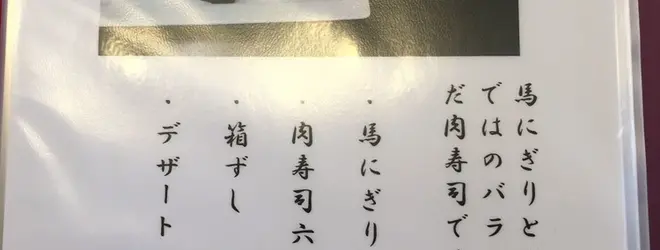 馬にぎりと
ではのバラ
だ肉寿司で
・馬にぎり
・肉寿司六
・箱ずし
・デザート